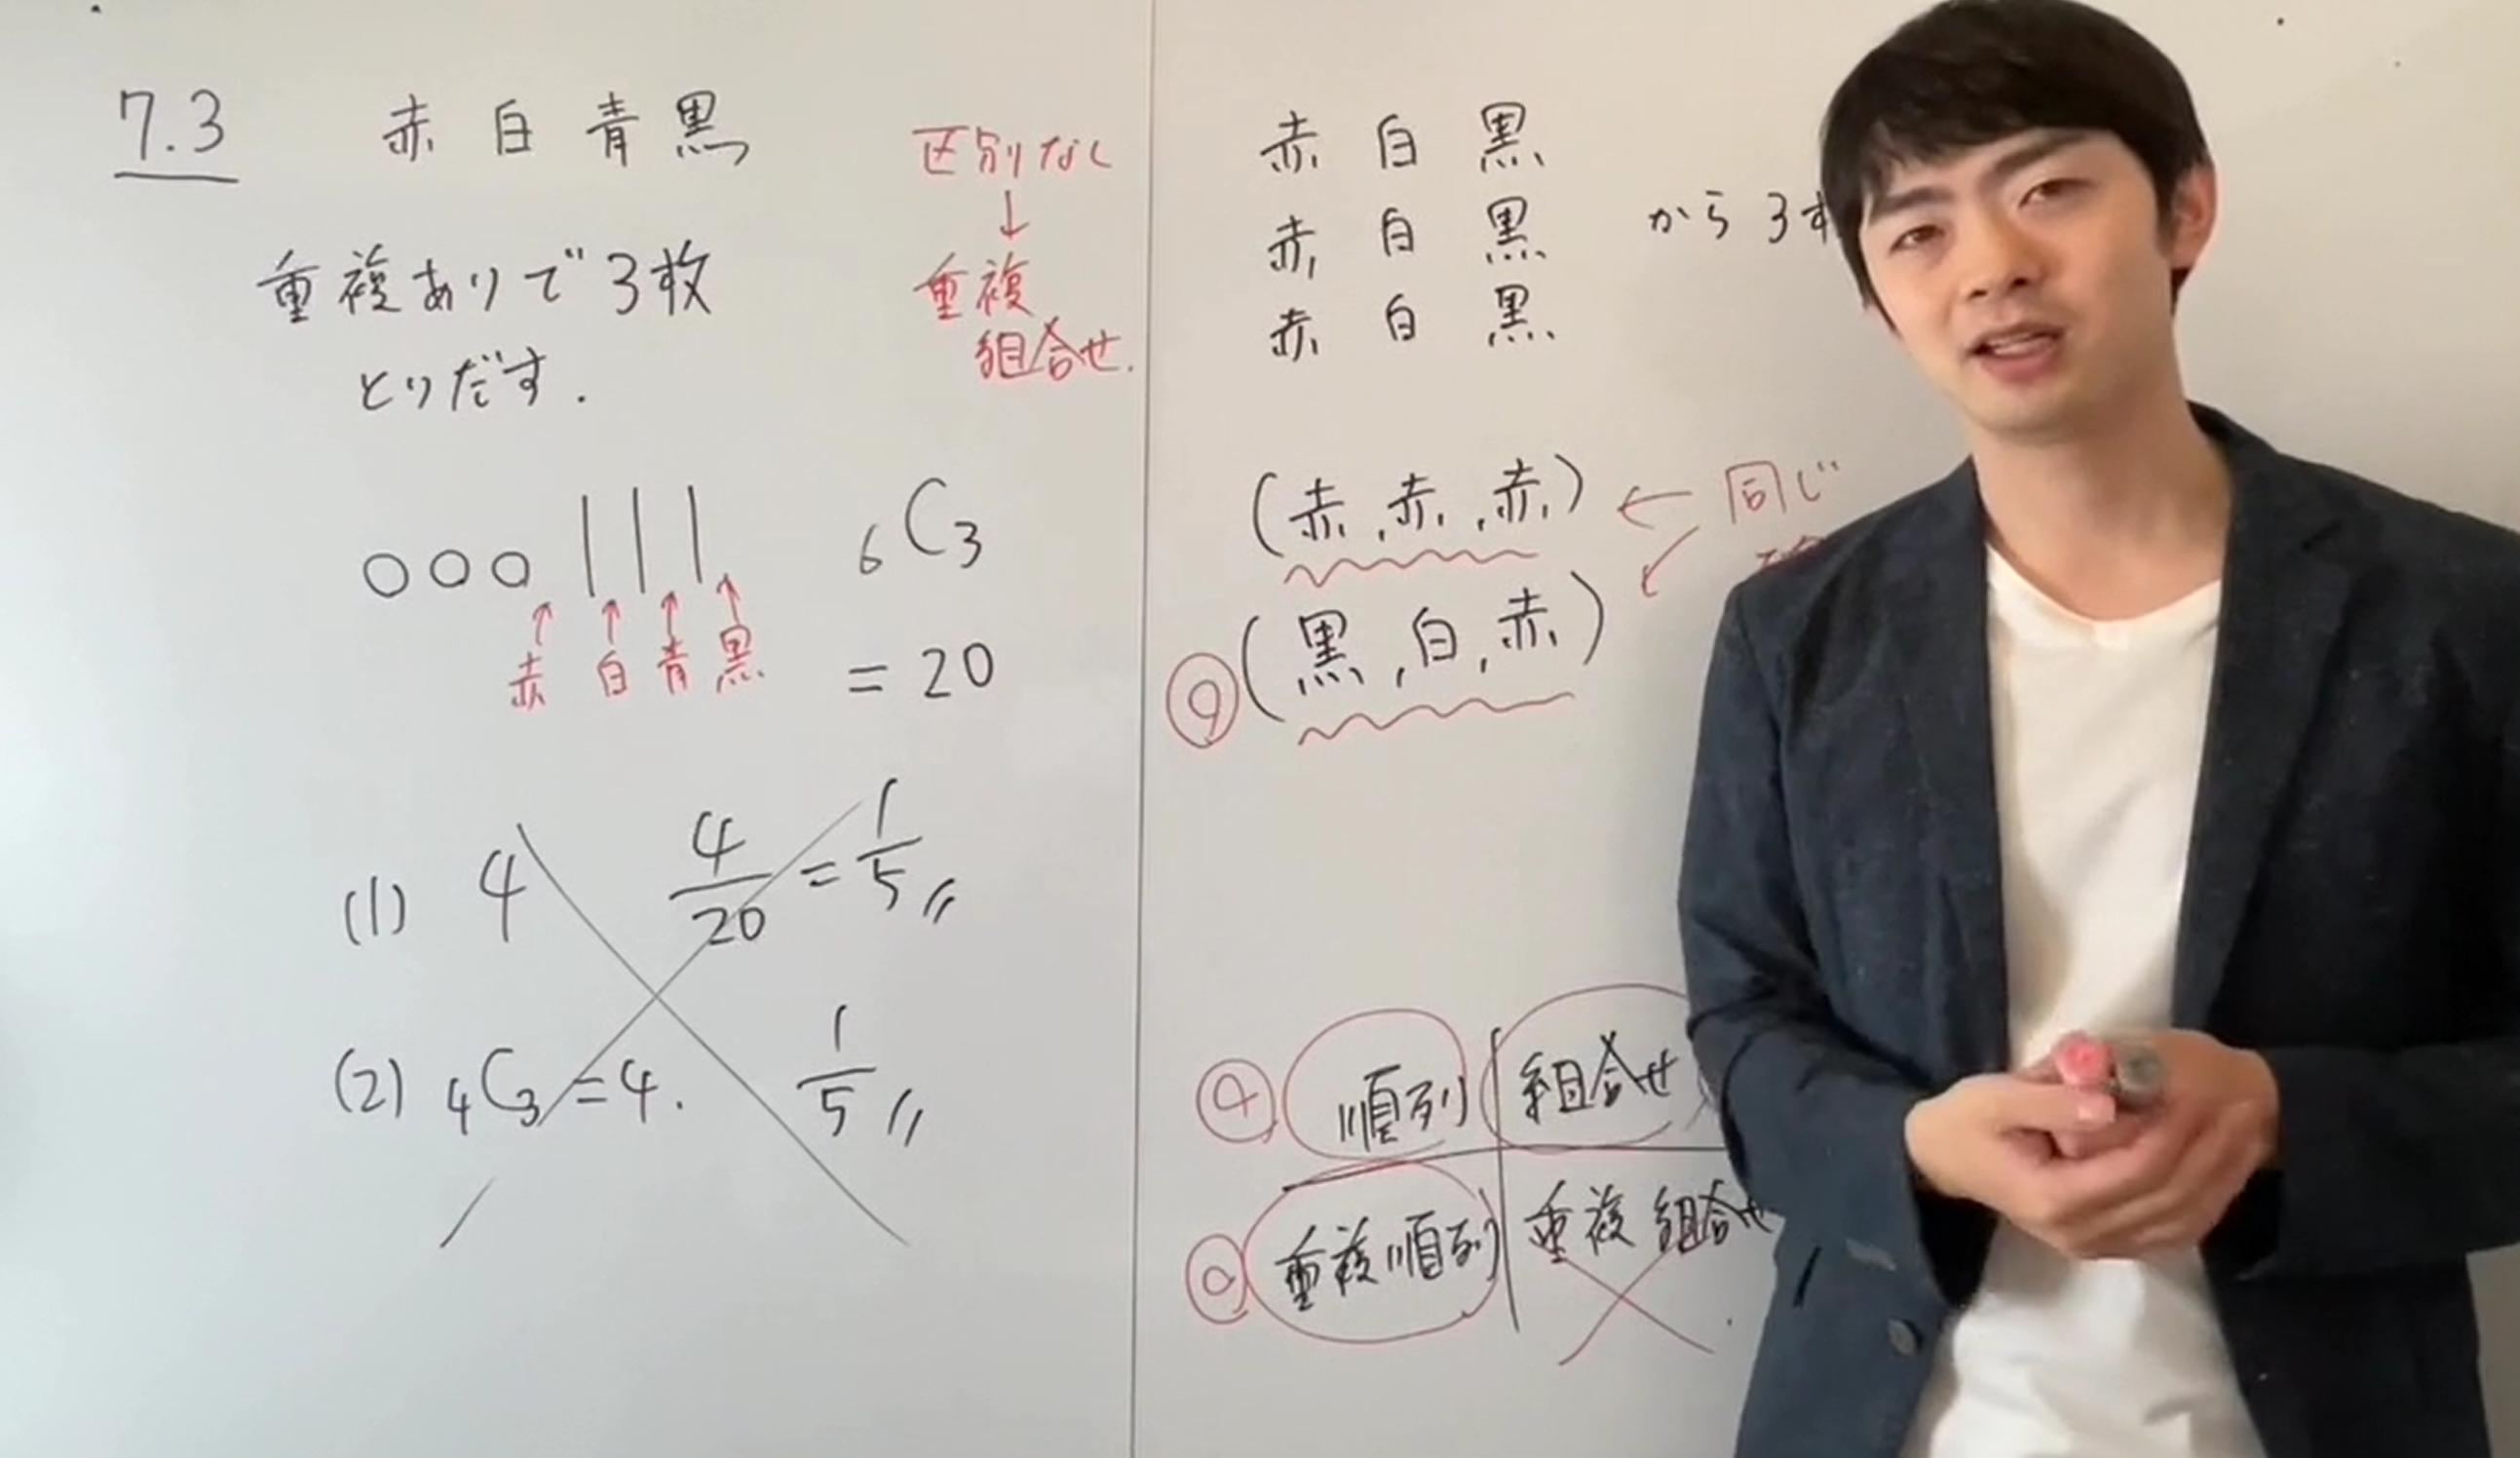 7.3 赤 白 青 黒
重複ありで3枚
とりだす.
区別なし
↓
重複
組合せ.
○○○|||
赤 白 青 黒
₆C₃
= 20
(1) 4 4/20 = 1/5
(2) ₄C₃ = 4. 1/5
赤 白 黒
赤 白 黒 から 3
赤 白 黒
(赤, 赤, 赤) ← 同じ
(黒, 白, 赤)
順列 組合せ
重複順列 重複組合せ